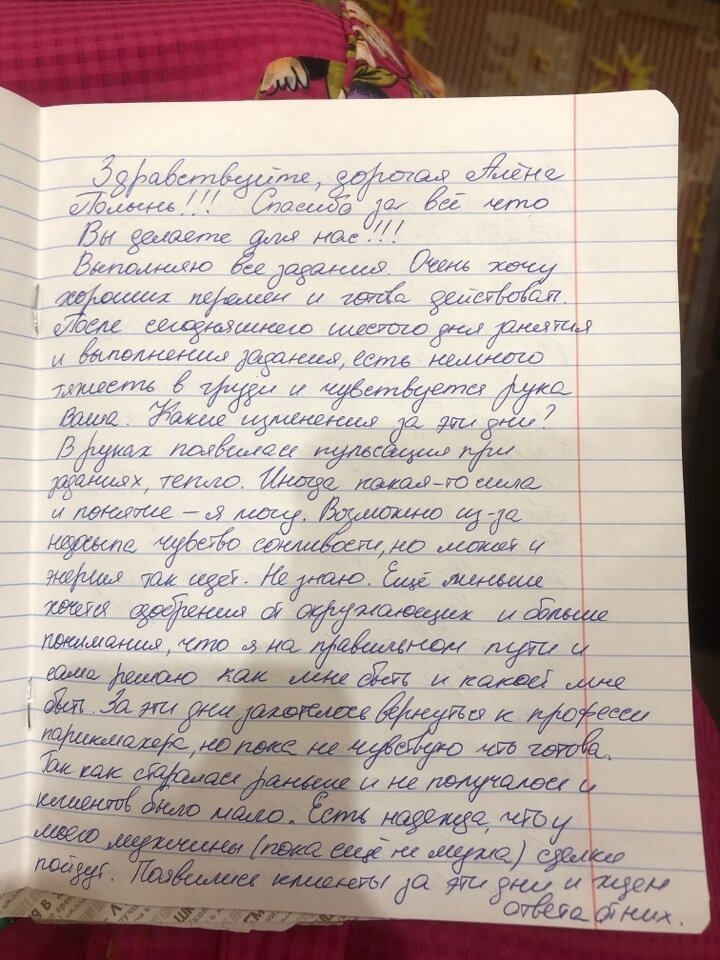 Здравствуйте, дорогая Алёна
Полынь!!! Спасибо за всё что
Вы делаете для нас!!!
Выполняю все задания. Очень хочу
хороших перемен и готова действовать.
После сегодняшнего шестого дня занятия
и выполнения задания, есть немного
тяжесть в груди и чувствуется рука
Ваша. Какие изменения за эти дни?
В руках появилась пульсация при
заданиях, тепло. Иногда какая-то сила
и понятие – я могу. Возможно из-за
недосыпа чувство сонливости, но может и
энергия так идет. Не знаю. Ещё меньше
хочется одобрения от окружающих и больше
понимания, что я на правильном пути и
сама решаю как мне быть и какой мне
быть. За эти дни захотелось вернуться к професси
парикмахера, но пока не чувствую что готова.
Так как старалась раньше и не получалось и
клиентов было мало. Есть надежда, что у
моего мужчины (пока ещё не мужа) сделки
пойдут. Появились клиенты за эти дни и ждем
ответа от них.